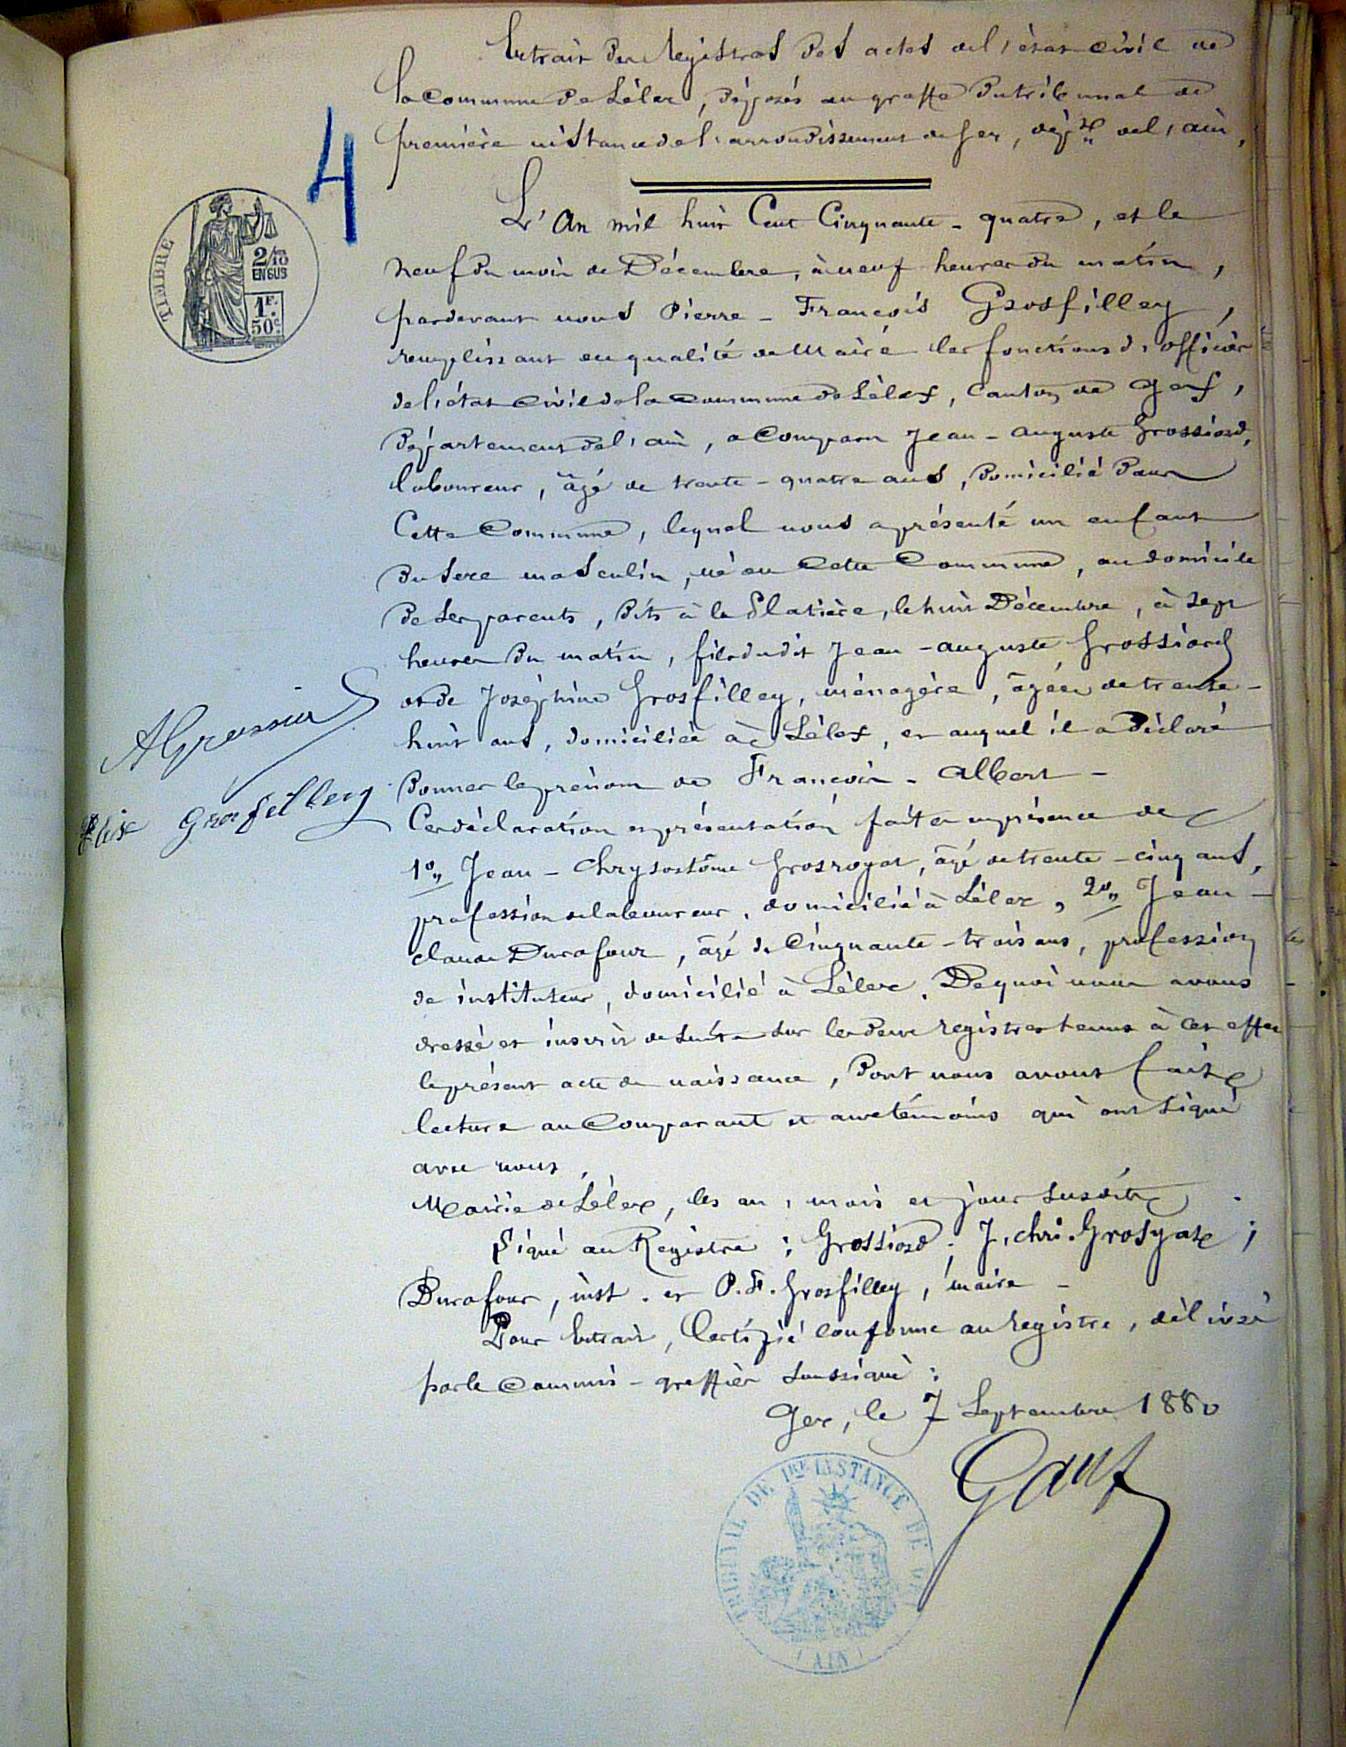 Extrait des Registres des actes de l'état civil de
la Commune de Lélex, déposés au greffe du tribunal de
première instance de l'arrondissement de Gex, dép.t de l'ain,
4
TIMBRE
2/10
EN SUS
1F.
50c.
L'An mil huit Cent Cinquante-quatre, et le
neuf du mois de Décembre, à neuf heures du matin,
pardevant nous Pierre-François Grosfilley,
remplissant en qualité de Maire les fonctions d'officier
de l'état civil de la Commune de Lélex, Canton de Gex,
Département de l'ain, a Comparu Jean-auguste Grossiord,
laboureur, âgé de trente-quatre ans, Domicilié Dans
Cette Commune, lequel nous a présenté un enfant
du Sexe masculin, né en Cette Commune, au domicile
de Ses parents, dits à la Platière, le huit Décembre, à Sept
heures du matin, fils dudit Jean-auguste Grossiord
et de Joséphine Grosfilley, ménagère, âgée de trente-
huit ans, domiciliée à Lélex, et auquel il a Déclaré
Donner le prénom de François-Albert-
Ces déclaration et présentation faites en présence de
1o,, Jean-Chrysostôme Grosgojat, âgé de trente-cinq ans,
profession de laboureur, domicilié à Lélex, 2o,, Jean-
claude Durafour, âgé de Cinquante-trois ans, profession
de instituteur, domicilié à Lélex. De quoi nous avons
dressé et inscrit de Suite sur les deux registres tenus à cet effet
le présent acte de naissance, Dont nous avons fait
lecture au Comparant et aux témoins qui ont Signé
avec nous,
Mairie de Lélex, les an, mois et jour Susdits
Signé au Registre : Grossiord; J. Chri. Grosgojat;
Durafour, inst. et P.F. Grosfilley, maire-
Pour Extrait, Certifié conforme au registre, délivré
par le Commis-greffier Soussigné :
Gex, le 7 Septembre 1880
A Grossiord
Elise Grosfilley
TRIBUNAL DE 1RE INSTANCE DE GEX
(AIN)